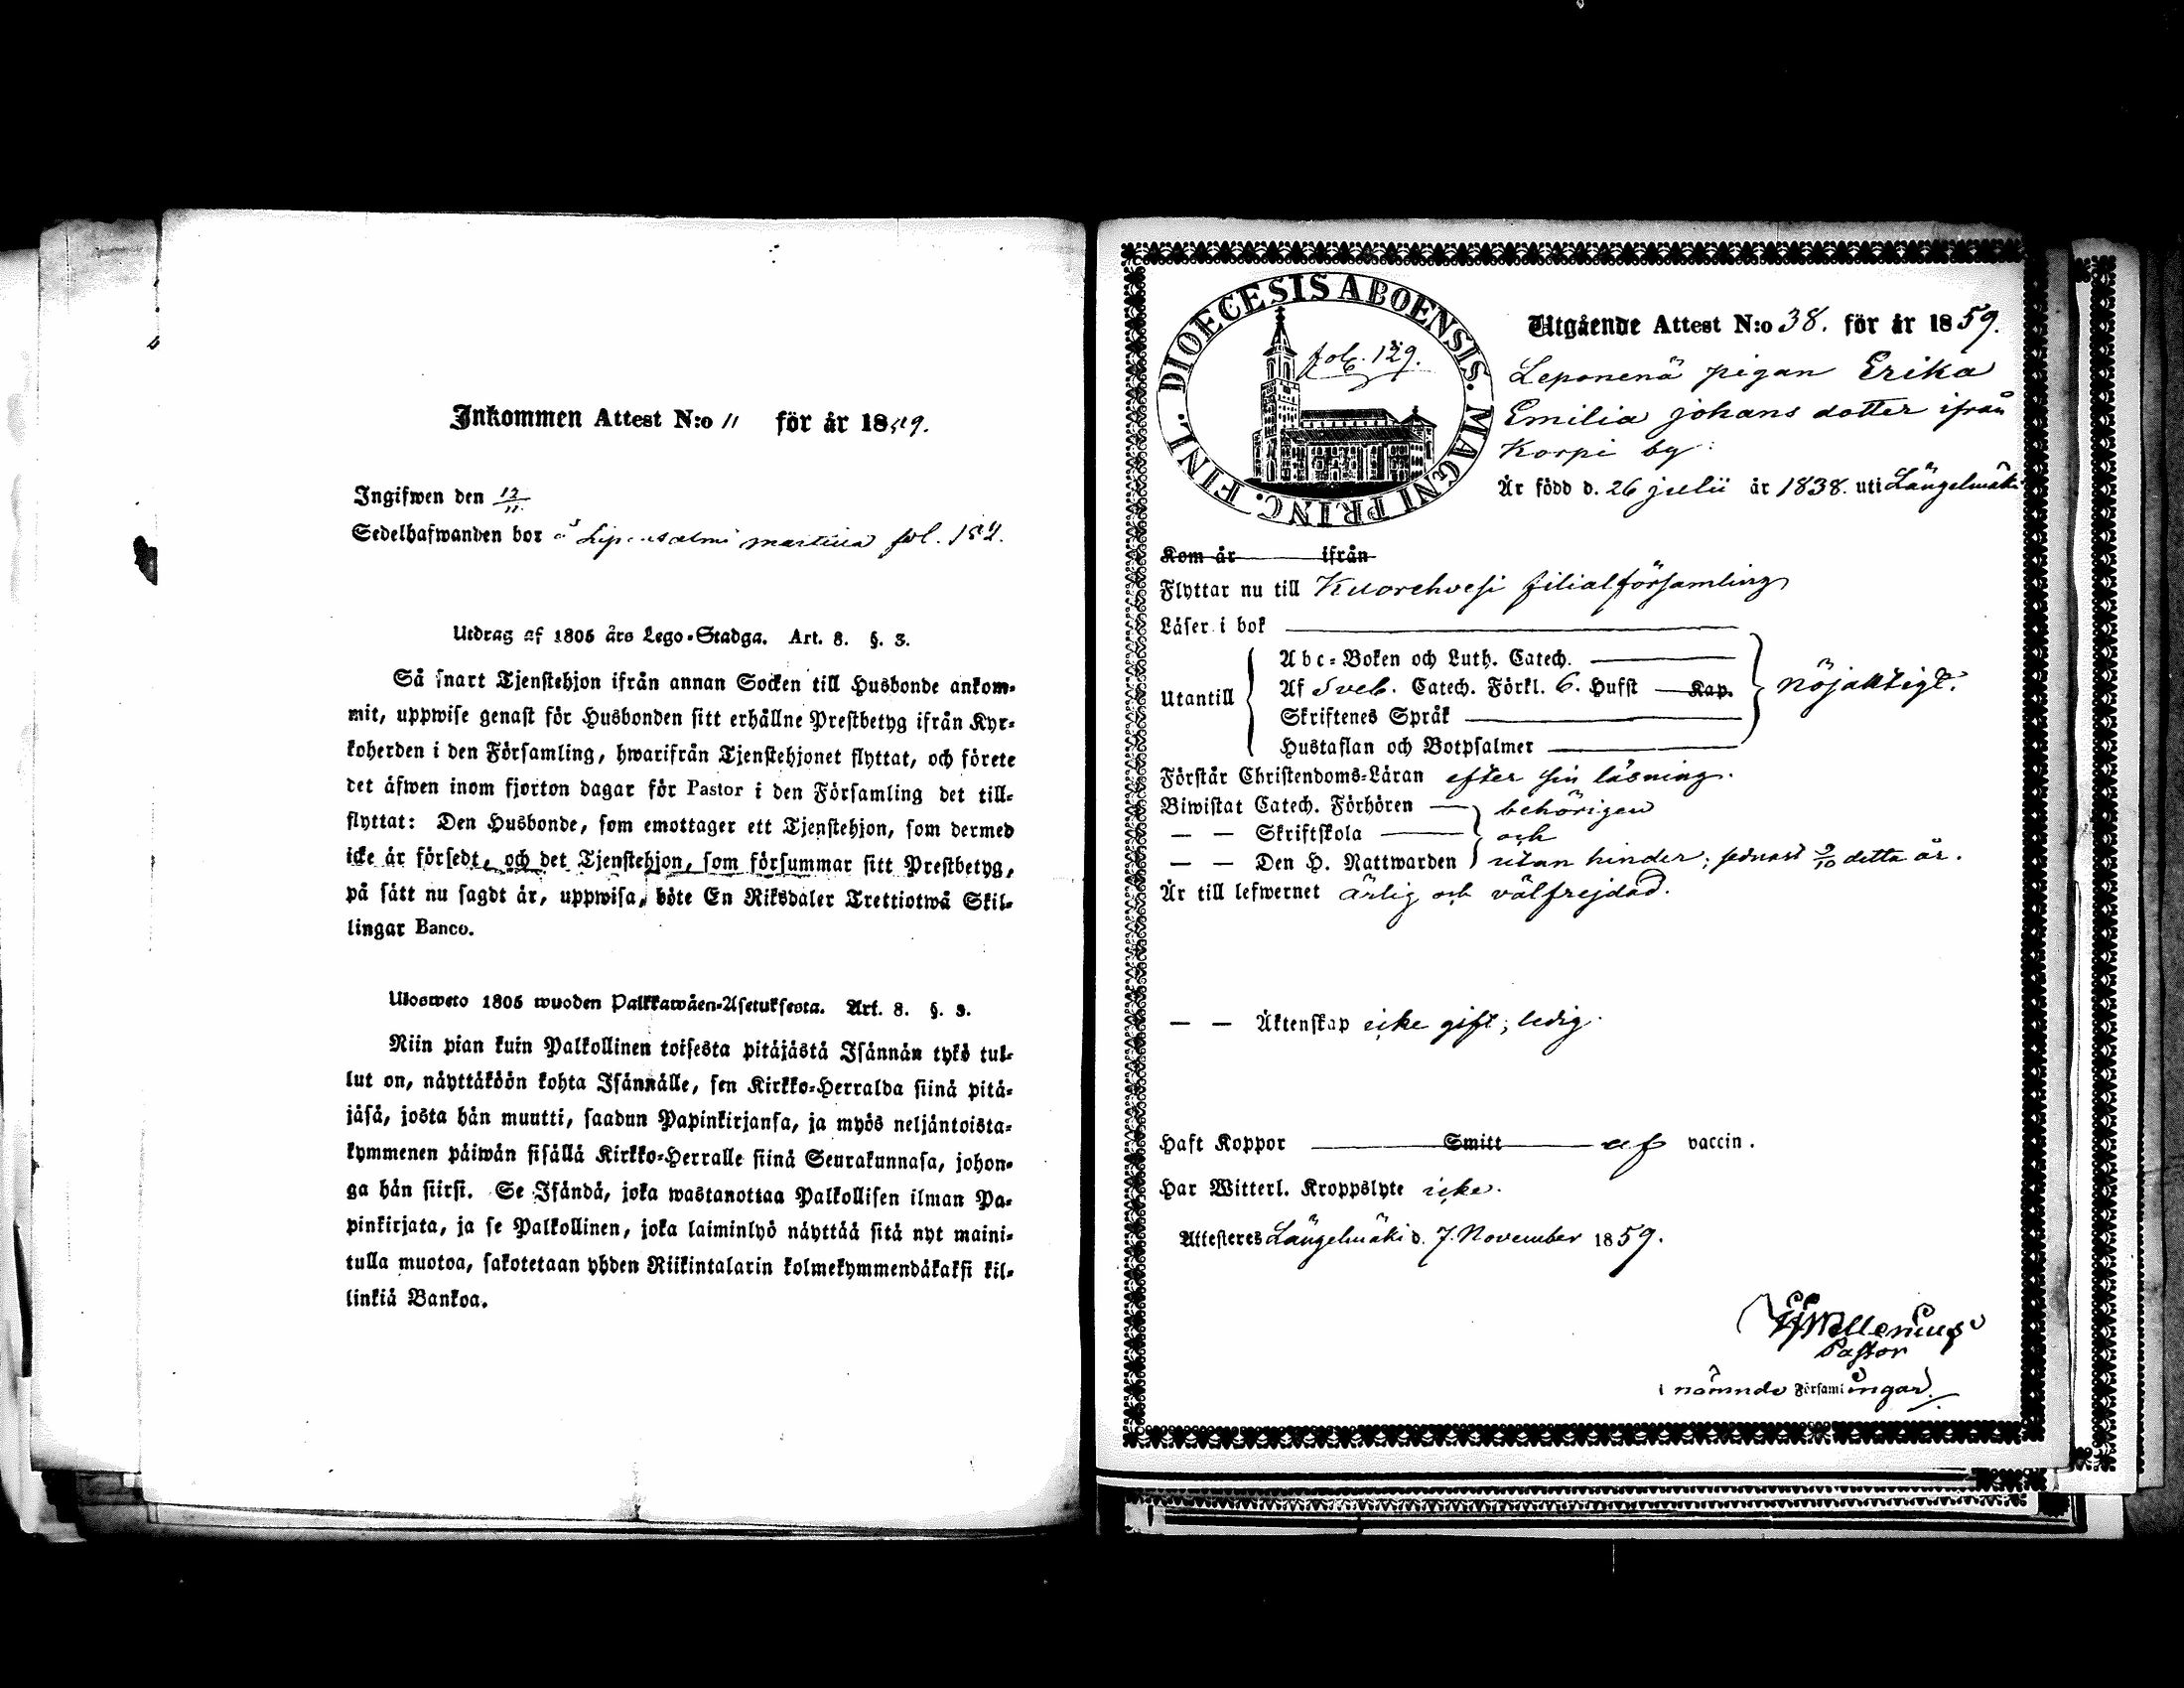 Inkommen Attest N:o 11 för år 1859.
Ingifwen den 12/11
Sedelhafwanden bor å Lipensalmi fol. 182.
Utdrag af 1805 års Lego-Stadga. Art. 8. §. 3.
Så snart Tjenstehjon ifrån annan Socken till Husbonde ankom-
mit, uppwise genast för Husbonden sitt erhållne Prestbetyg ifrån Kyr-
koherden i den Församling, hwarifrån Tjenstehjonet flyttat, och förete
det äfwen inom fjorton dagar för Pastor i den Församling det till-
flyttat: Den Husbonde, som emottager ett Tjenstehjon, som dermed
icke är försedt, och det Tjenstehjon, som försummar sitt Prestbetyg,
på sätt nu sagdt är, uppwisa, böte En Riksdaler Trettiotwå Skil-
lingar Banco.
Ulosweto 1805 wuoden Palkkawäen-Asetuksesta. Art. 8. §. 3.
Niin pian kuin Palkollinen toisesta pitäjästä Isännän tykö tul-
lut on, näyttäköön kohta Isännälle, sen Kirkko-Herralda siinä pitä-
jäsä, josta hän muutti, saadun Papinkirjansa, ja myös neljäntoista-
kymmenen päiwän sisällä Kirkko-Herralle siinä Seurakunnasa, johon-
ga hän siirsi. Se Isändä, joka wastanottaa Palkollisen ilman Pa-
pinkirjata, ja se Palkollinen, joka laiminlyö näyttää sitä nyt maini-
tulla muotoa, sakotetaan yhden Riikintalarin kolmekymmendäkaksi kil-
linkiä Bankoa.
DIOECESIS ABOENSIS. MAGNI PRINC. FINL.
fol. 129.
Utgående Attest N:o 38. för år 1859.
pigan Erika
Emilia Johans dotter ifrån
Korpi by:
Är född d. 26 Julii år 1838. uti Längelmäki
Kom år ifrån
Flyttar nu till Kuorehvesi filialförsamling
Läser i bok
Utantill
Abc-Boken och Luth. Catech.
Af Sveb. Catech. Förkl. 6. Hufst Kap.
Skriftenes Språk
Hustaflan och Botpsalmer
nöjaktigt.
Förstår Christendoms-Läran efter sin läsning.
Biwistat Catech. Förhören behörigen
— — Skriftskola och
— — Den H. Nattwarden utan hinder; senast 9/10 detta år.
Är till lefwernet ärlig och välfrejdad.
— — Äktenskap icke gift; ledig.
Haft Koppor Smitt af vaccin.
Har Witterl. Kroppslyte icke.
Attesteres Längelmäki d. 7. November 1859.
Pastor
i nämnde Församlingar.